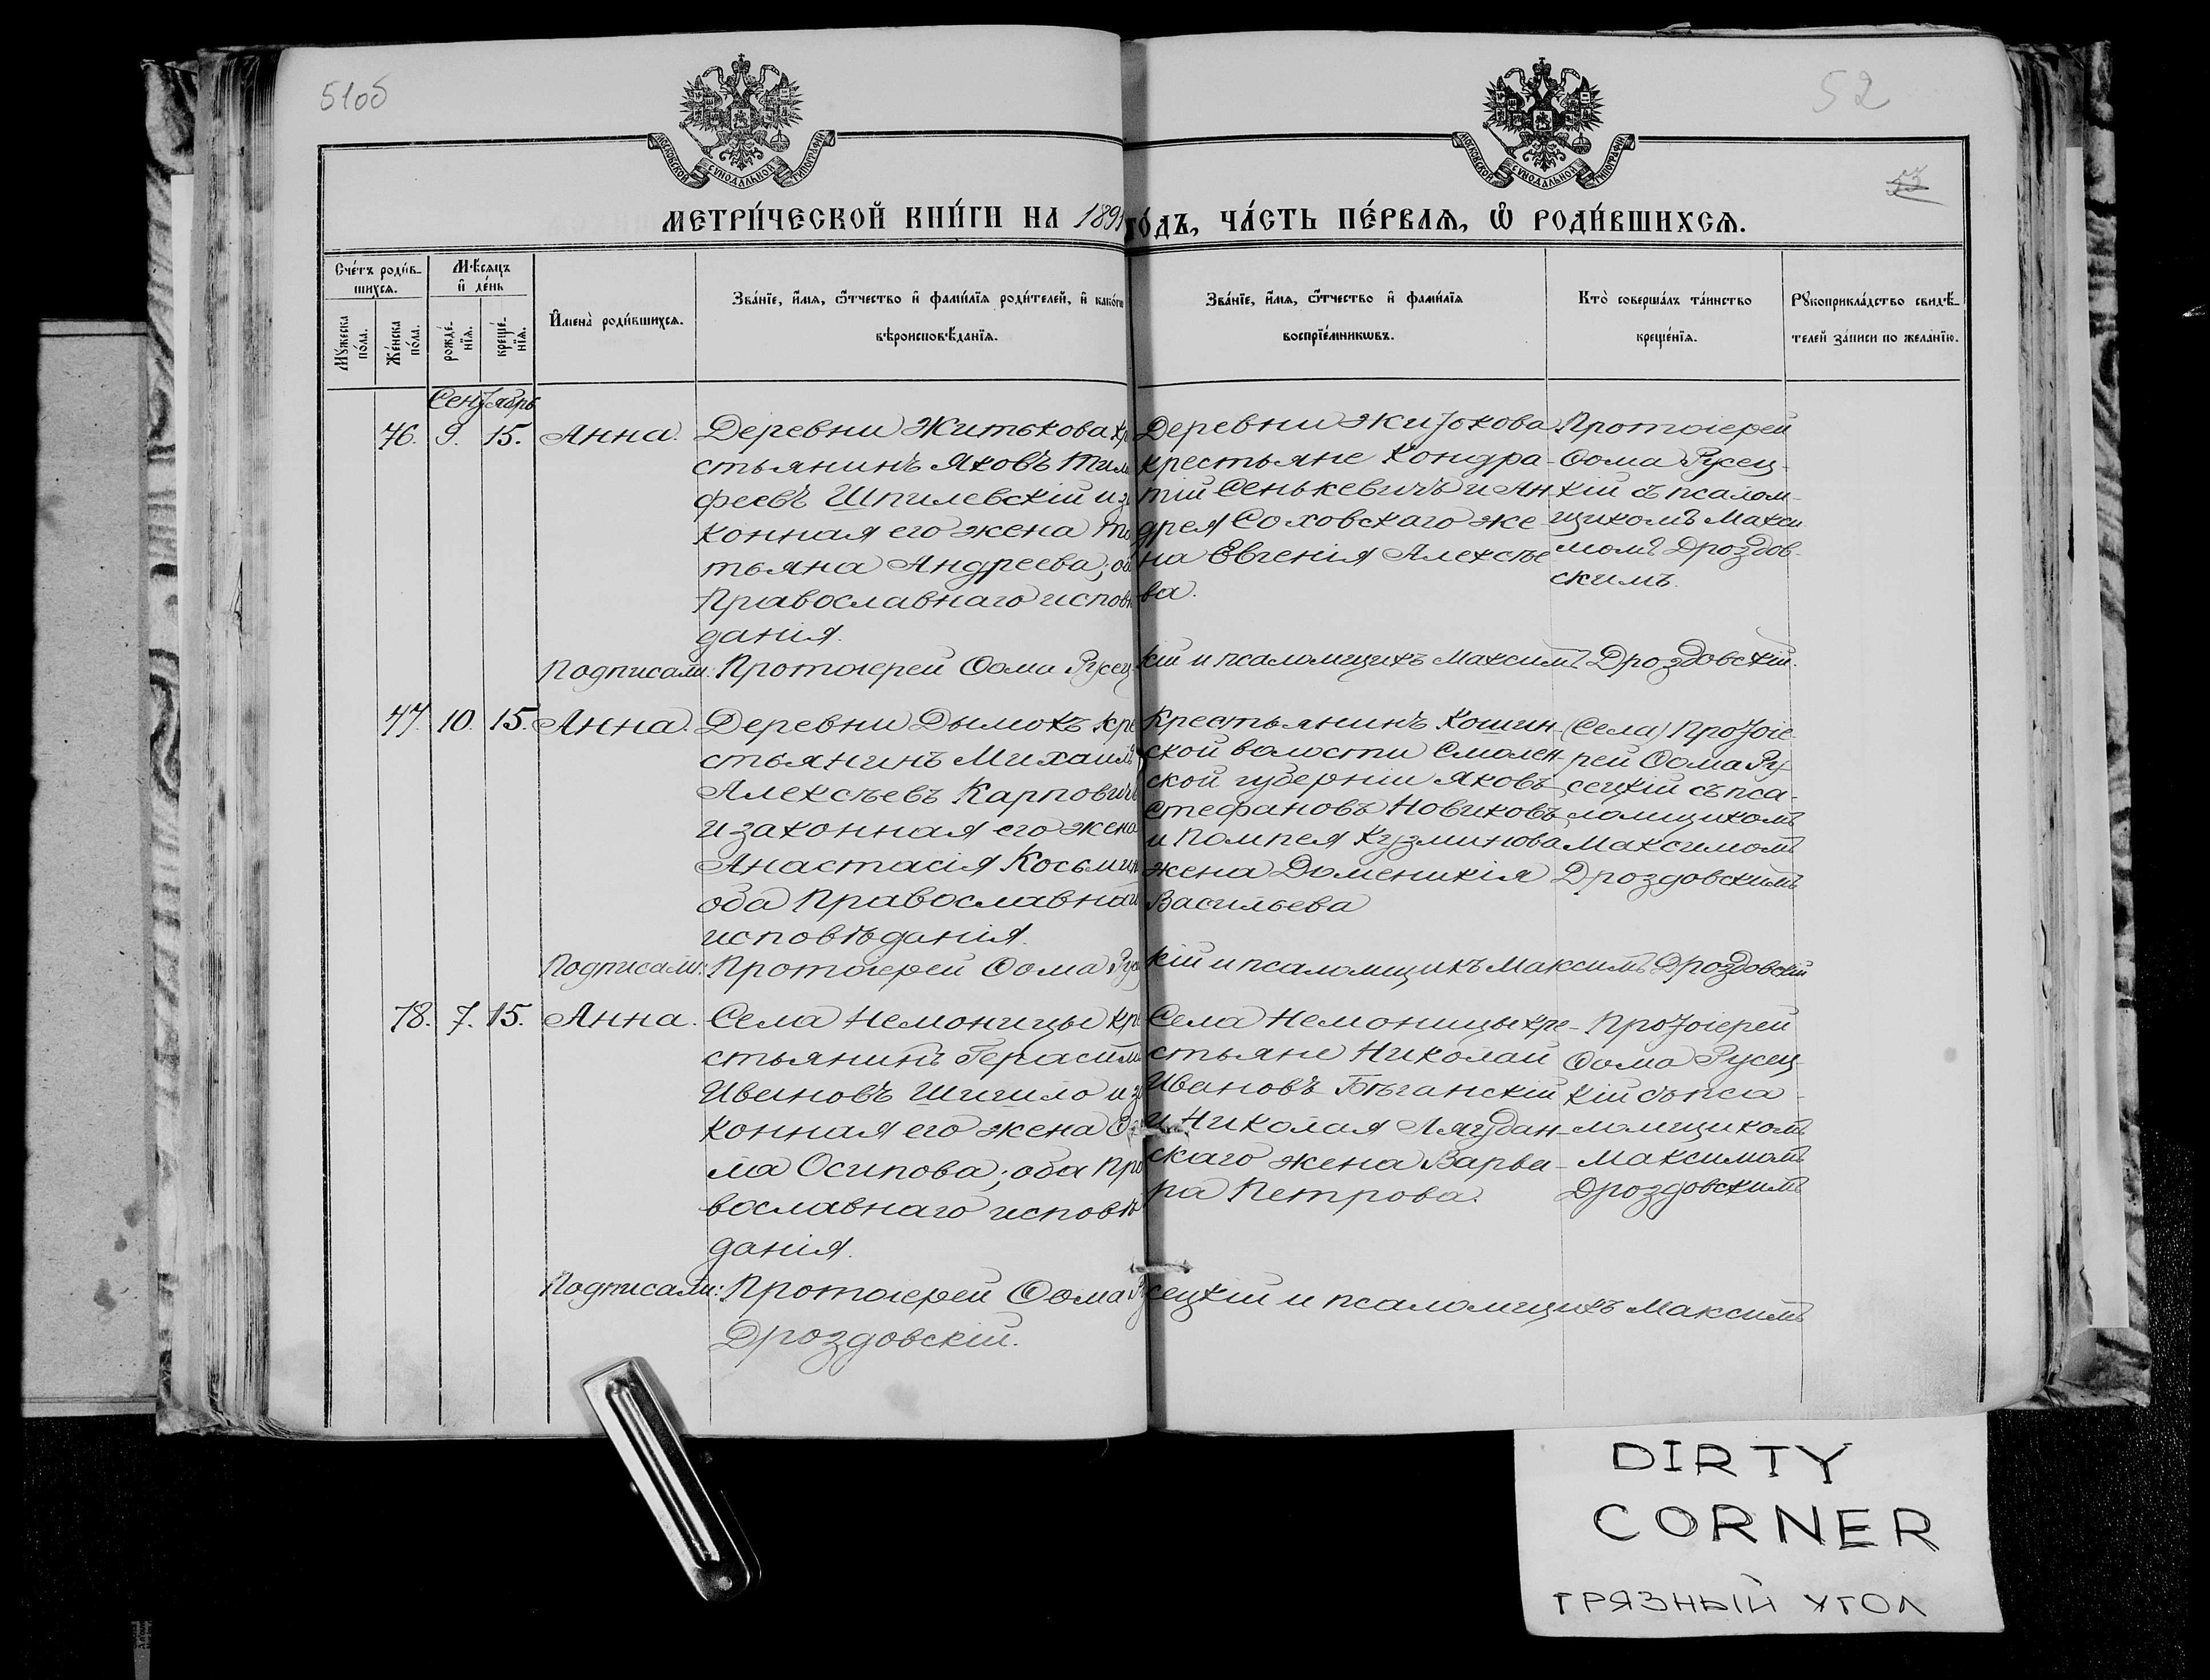 51об
52
53
МОСКОВСКОЙ СѴНОДАЛЬНОЙ ТИПОГРАФІИ
МОСКОВСКОЙ СѴНОДАЛЬНОЙ ТИПОГРАФІИ
МЕТРИ́ЧЕСКОЙ КНИ́ГИ НА 1891
ГО́ДЪ, ЧА́СТЬ ПЕ́РВАѦ, Ѡ РОДИ́ВШИХСѦ.
Сче́тъ роди́в-
шихсѧ.
Мꙋ́жеска по́ла.
Же́нска по́ла.
Мѣ́сѧцъ
и҆ де́нь
рожде́-нїѧ.
креще́-нїѧ.
И҆мена̀ роди́вшихсѧ.
Зва́нїе, и҆́мѧ, ѻ҆́тчество и҆ фами́лїѧ роди́телей, и҆ како́гѡ
вѣроисповѣ́данїѧ.
Зва́нїе, и҆́мѧ, ѻ҆́тчество и҆ фами́лїѧ
воспрїе́мникѡвъ.
Кто̀ соверша́лъ та́инство
креще́нїѧ.
Рꙋкоприкла́дство свидѣ́-
телей за́писи по жела́нїю.
Сентябрь
76. 9. 15. Анна.
Деревни Житькова кр
стьянинъ Яковъ Тим
феевъ Шпилевскій и з
конная его жена Та
тьяна Андреева; об
Православнаго исповѣ
данія.
Деревни Житькова
крестьяне Кондра-
тій Сенькевичъ и Ан
дрея Соховскаго же-
на Евгенія Алексѣе
ва.
Протоіерей
Ѳома Русец-
кій съ псалом-
щикомъ Макси
момъ Дроздов-
скимъ.
Подписали: Протоіерей Ѳома Русец
кій и псаломщикъ Максимъ Дроздовскій.
77. 10. 15. Анна.
Деревни Дымокъ кре
стьянинъ Михаилъ
Алексѣевъ Карповичъ
и законная его жена
Анастасія Косьмин
оба Православнаго
исповѣданія.
Крестьянинъ Кошин-
ской волости Смолен-
ской губерніи Яковъ
Стефановъ Новиковъ
и Помпея Кузминова
жена Доменикія
Васильева
(Села) Протоіе-
рей Ѳома Ру-
сецкій съ пса-
ломщикомъ
Максимомъ
Дроздовскимъ
Подписали: Протоіерей Ѳома Рус
кій и псаломщикъ Максимъ Дроздовскій
78. 7. 15. Анна.
Села Немоницы кре
стьянинъ Герасимъ
Ивановъ Шигило и за
конная его жена
ла Осипова; оба Пра
вославнаго исповѣ
данія.
Села Немоницы кре-
стьяне Николай
Ивановъ Бѣганскій
и Николая Лягудан-
скаго жена Варва-
ра Петрова.
Протоіерей
Ѳома Русец-
кій съ пса-
ломщикомъ
Максимомъ
Дроздовскимъ
Подписали: Протоіерей Ѳома Ру
сецкій и псаломщикъ Максимъ
Дроздовскій.
DIRTY
CORNER
ГРЯЗНЫЙ УГОЛ